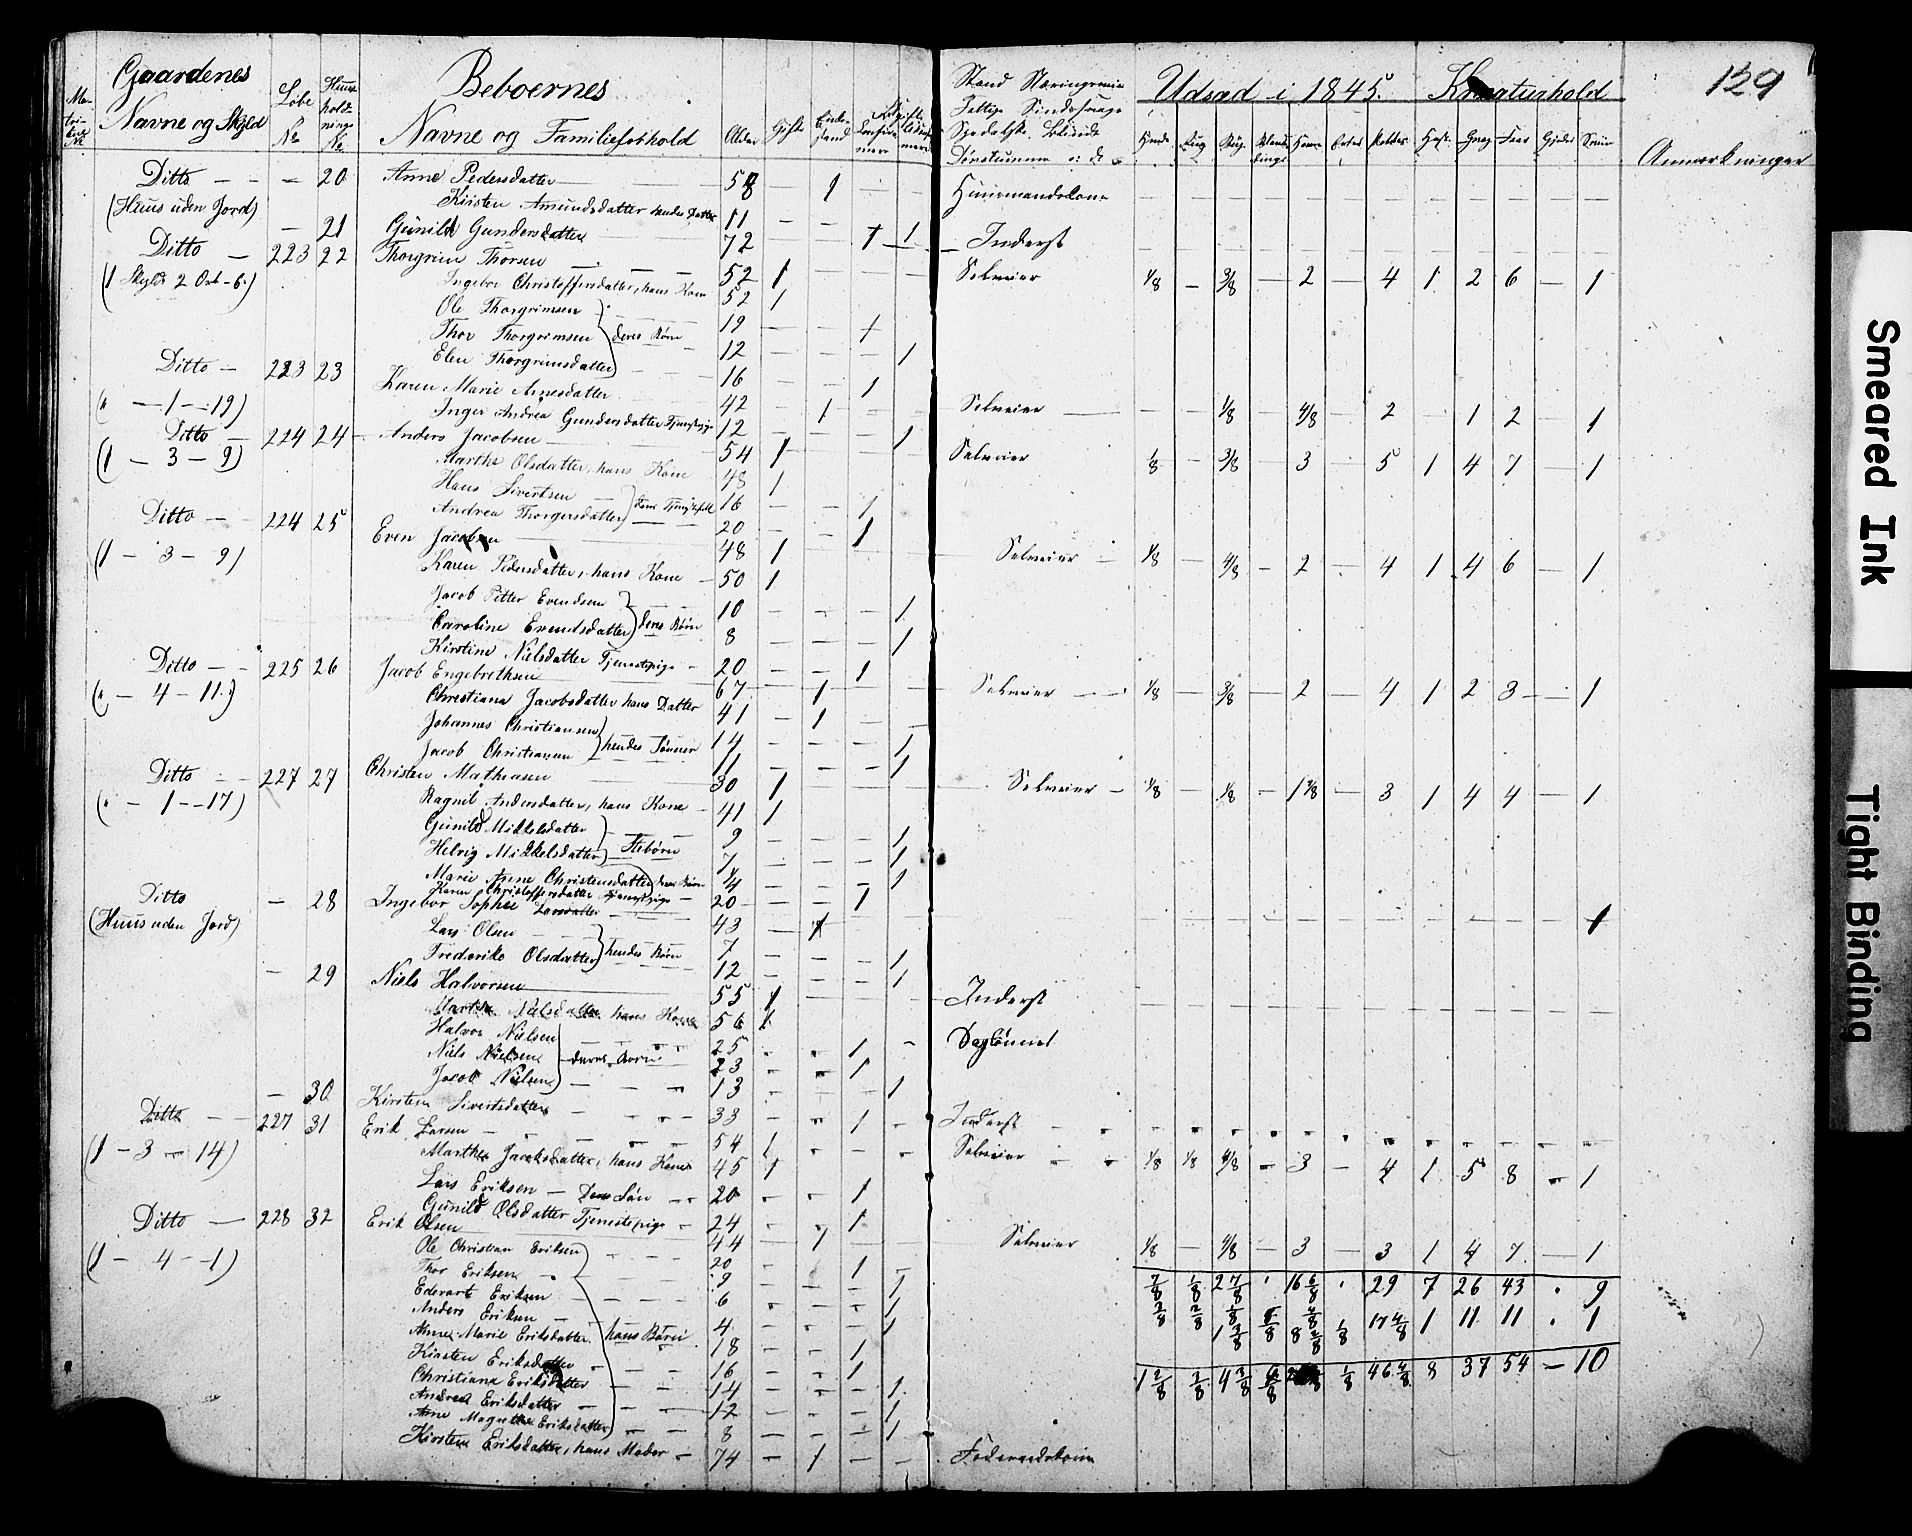 129
Gaardenes Navne og Skyld
Løbe No
Huus holdnings No
Beboernes Navne og Familieforhold
Alder
Gifte
Enke stand
Stand Næringsveie
Udsæd i 1845.
Kreaturhold
Anmærkninger
Ditto — — — 20 Anne Pedersdatter 58 — 1 — — Huusmandskone
(Huus uden Jord) Kirsten Amundsdatter hendes Datter 11 — —
— 21 Gunild Gundersdatter 72 1 Inderst
Ditto — 223 22 Thorgrim Thorsen 52 1 Selveier 1/8 — 3/8 — 2 — 4 1 2 6 — 1
(1 Skyld 2 Ort - 6) Ingebor Christoffersdatter, hans Kone 52 1
Ole Thorgrimsen 19 — — 1
Thor Thorgrimsen deres Børn 12 — — — 1
Elen Thorgrimsdatter 16 — — 1
Ditto — 223 23 Karen Marie Arnesdatter 42 — 1 — Selveier — — 1/8 — 4/8 — 2 1 2 — 1
(" — 1 — 19) Inger Andrea Gundersdatter 12 — — — 1
Ditto — 224 24 Anders Jacobsen 54 1 Selveier 1/8 — 3/8 — 3 — 5 1 4 7 — 1
(1 — 3 — 9) Marthe Olsdatter, hans Kone 48 1
Hans Sivertsen 16 — — 1
Andrea Thorgersdatter 20 — — 1
Ditto — — 224 25 Even Jacobsen 48 1 Selveier — 1/8 — 4/8 — 2 4 1 4 6 — 1
(1 — 3 — 9) Karen Pedersdatter, hans Kone — 50 1
Jacob Petter Evendsen 10 — — — 1
Caroline Evendsdatter deres Børn 8 — — — 1
Kirstine Nielsdatter Tjenestepige — 20 — — 1
Ditto — — 225 26 Jacob Engebrethsen 67 — 1 Selveier — — 1/8 — 3/8 — 2 — 4 1 2 3 — 1
(" — 4 — 11) Christiana Jacobsdatter hans Datter 41 — 1 — —
Johannes Christiansen 14 — — — 1
Jacob Christiansen hendes Sønner 11 — — — 1
Ditto — — 227 27 Christen Mathiasen 30 1 Selveier — 1/8 — 1/8 — — 3 1 4 4 — 1
(" — 1 — 17) Ragnil Andersdatter, hans Kone — 41 1
Gunild Mikkelsdatter 9 — — — 1
Helvig Mikkelsdatter Stebørn 7 — — — 1
Marie Anne Christensdatter deres Børn 4 — — — 1
Karen Christoffersdatter Tjenestepige — 20 — — 1
Ditto — 28 Ingebor Sophie Larsdatter 43 — 1 1
(Huus uden Jord) Lars Olsen 7 — — — 1
Frederike Olsdatter hendes Børn 12 — — — 1
— 29 Niels Halvorsen 55 1 Inderst
Marthe Nielsdatter hans Kone 56 1
Halvor Nielsen 25 1 — Daglønnet
Niels Nielsen deres Børn 23 1
Jacob Nielsen 13 — — — 1
— 30 Kirsten Sivertsdatter 33 1 — Inderst
Ditto — — 227 31 Erik Larsen 54 1 Selveier 1/8 1/8 4/8 — 3 — 4 1 5 8 1
(1 — 3 — 14) Marthe Jacobsdatter, hans Kone 45 1
Lars Eriksen — Deres Søn 20 — — 1
Gunild Olsdatter Tjenestepige — 24 — — 1
Ditto — 228 32 Erik Olsen 44 — 1 Selveier 1/8 — 4/8 — 3 — 3 1 4 7 — 1
(1 — 4 — 1) Ole Christian Eriksen 20 1
Thor Eriksen 9 1
Edevart Eriksen 6 1
Anders Eriksen 4 1
Anne Marie Eriksdatter hans Børn 18 1
Kirsten Eriksdatter 16 1
Christiana Eriksdatter 14 1
Andrea Eriksdatter 12 1
Anne Magrethe Eriksdatter 8 1
Kirsten Eriksdatter, hans Moder — 74 — 1 — — Foderaadskone
7/8 1/8 2 7/8 16 6/8 29 7 26 43 9
17 4/8 1 11 11 1
1 2/8 4 3/8 1/8 46 4/8 8 37 54 — 10
Smeared Ink
Tight Binding